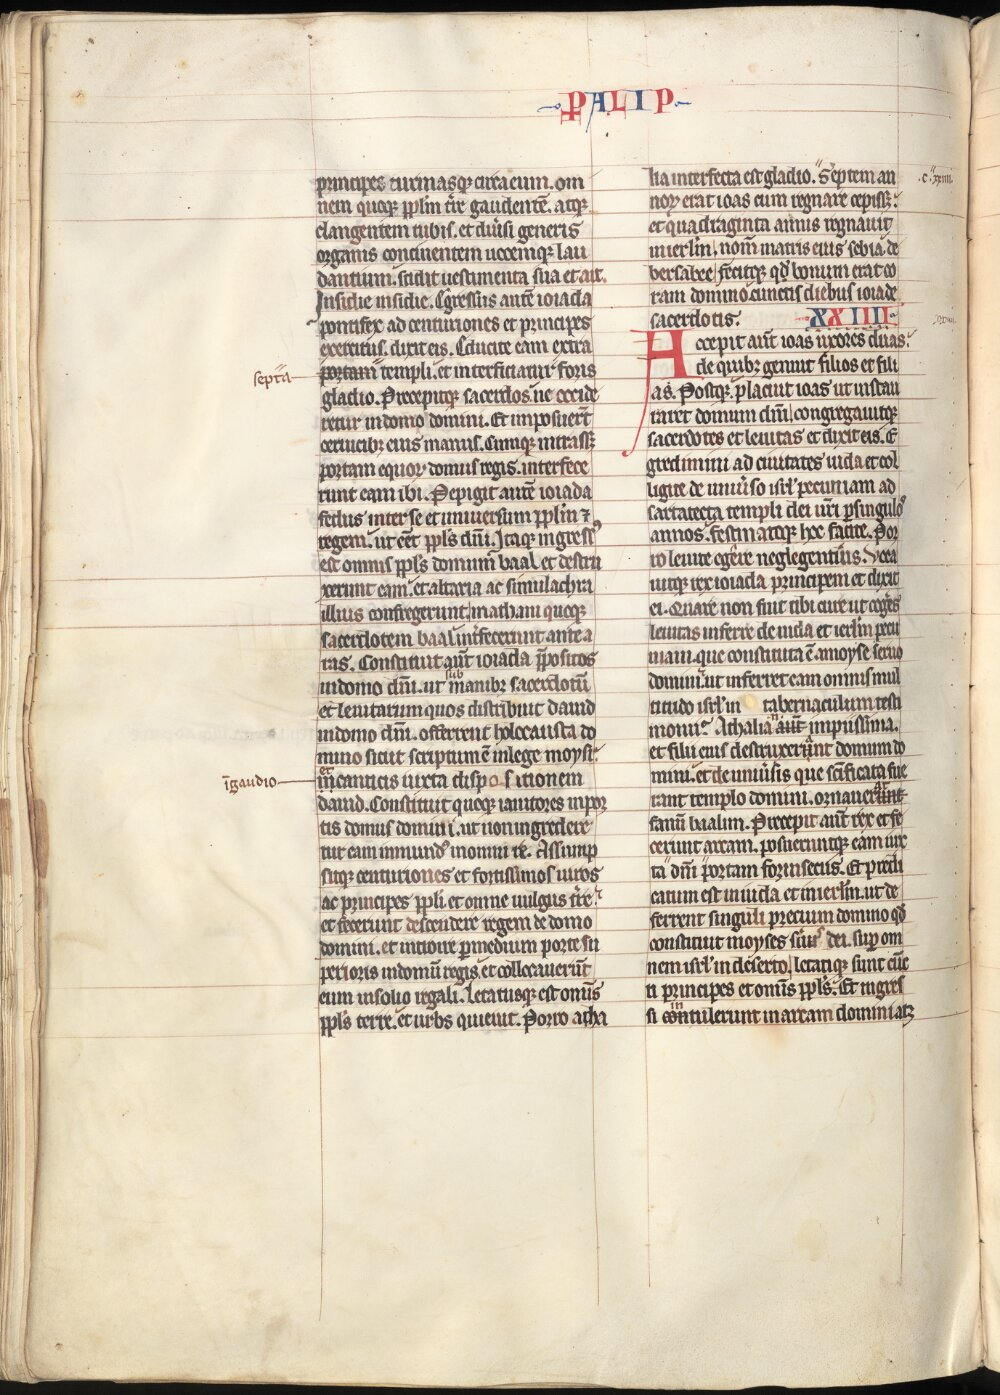 PALIP
principes turmasq; circa eum. om
nem quoq; pplm tre gaudentē. atq;
clangentem tubis. et diuersi generis
organis concinentem uocemq; lau
dantium. scidit uestimenta sua et ait.
Insidie insidie. Egressus autē ioiada
pontifex ad centuriones et principes
exercitus. dixit eis. Educite eam extra
septa
portam templi. et interficiatur foris
gladio. Precepitq; sacerdos. ne occide
retur in domo domini. Et imposuert
ceruicibz eius manus. Cumq; intrass;
portam equoꝝ domus regis. interfece
runt eam ibi. Pepigit autē ioiada
fedus inter se et uniuersum pplm ⁊
regem. ut eēt ppls dm̄i. Itaq; ingress⁹
est omnis ppls domum baal et destru
xerunt eam. et altaria ac simulachra
illius confregerunt. mathani quoq;
sacerdotem baal int̄fecerunt ante a
ras. Constituit aut̄ ioiada p̄positos
in domo dm̄i. ut sub manibz sacerdotū
et leuitarum quos distribuit dauid
in domo dm̄i. offerrent holocausta do
mino sicut scriptum ē in lege moysi.
īgaudio
et in canticis iuxta dispositionem
dauid. Constituit quoq; ianitores in por
tis domus domini. ut non ingredere
tur eam inmund⁹ in omni re. Assump
sitq; centuriones et fortissimos uiros
ac principes ppli et omne uulgus tre.
et fecerunt descendere regem de domo
domini. et introire p medium porte su
perioris in domū regis. et collocauerūt
eum in solio regali. Letatusq; est omīs
ppls terre. et urbs quieuit. Porro atha
lia interfecta est gladio. Septem an
c. xxiiii.
noꝝ erat ioas cum regnare cepiss;
et quadraginta annis regnauit
in ierlm̄. nom̄ matris eius sebia de
bersabee. fecitq; qd̄ bonum erat co
ram domino cunctis diebus ioiade
sacerdotis.
XXIIII
Accepit aut̄ ioas uxores duas.
de quibz genuit filios et fili
as. Postq; placuit ioas ut instau
raret domum dm̄i. congregauitq;
sacerdotes et leuitas et dixit eis. E
gredimini ad ciuitates iuda et col
ligite de uniuerso isrl̄ pecuniam ad
sartatecta templi dei ur̄i p singulos
annos. festinatq; hoc facite. Por
ro leuite egere neglegentius. Voca
uitq; rex ioiada principem et dixit
ei. Quare non fuit tibi cure ut coges
leuitas inferre de iuda et ierlm̄ pecu
niam. que constituta ē. a moyse seruo
domini. ut inferret eam omnis mul
titudo isrl̄ in tabernaculum testi
monii. Athalia aut̄ impiissima.
et filii eius destruxerunt domum do
mini. et de uniuersis que sc̄ificata fue
rant templo domini. ornauerunt
fanū baalim. Precepit aut̄ rex et fe
cerunt arcam. posueruntq; eam iux
ta dm̄i portam forinsecus. Et predi
catum est in iuda et in ierlm̄. ut de
ferrent singuli precium domino qd̄
constituit moyses seruus dei. sup om
nem isrl̄ in deserto. letatiq; sunt cūc
ti principes et omīs ppls. Et ingres
si contulerunt in arcam domini atq;